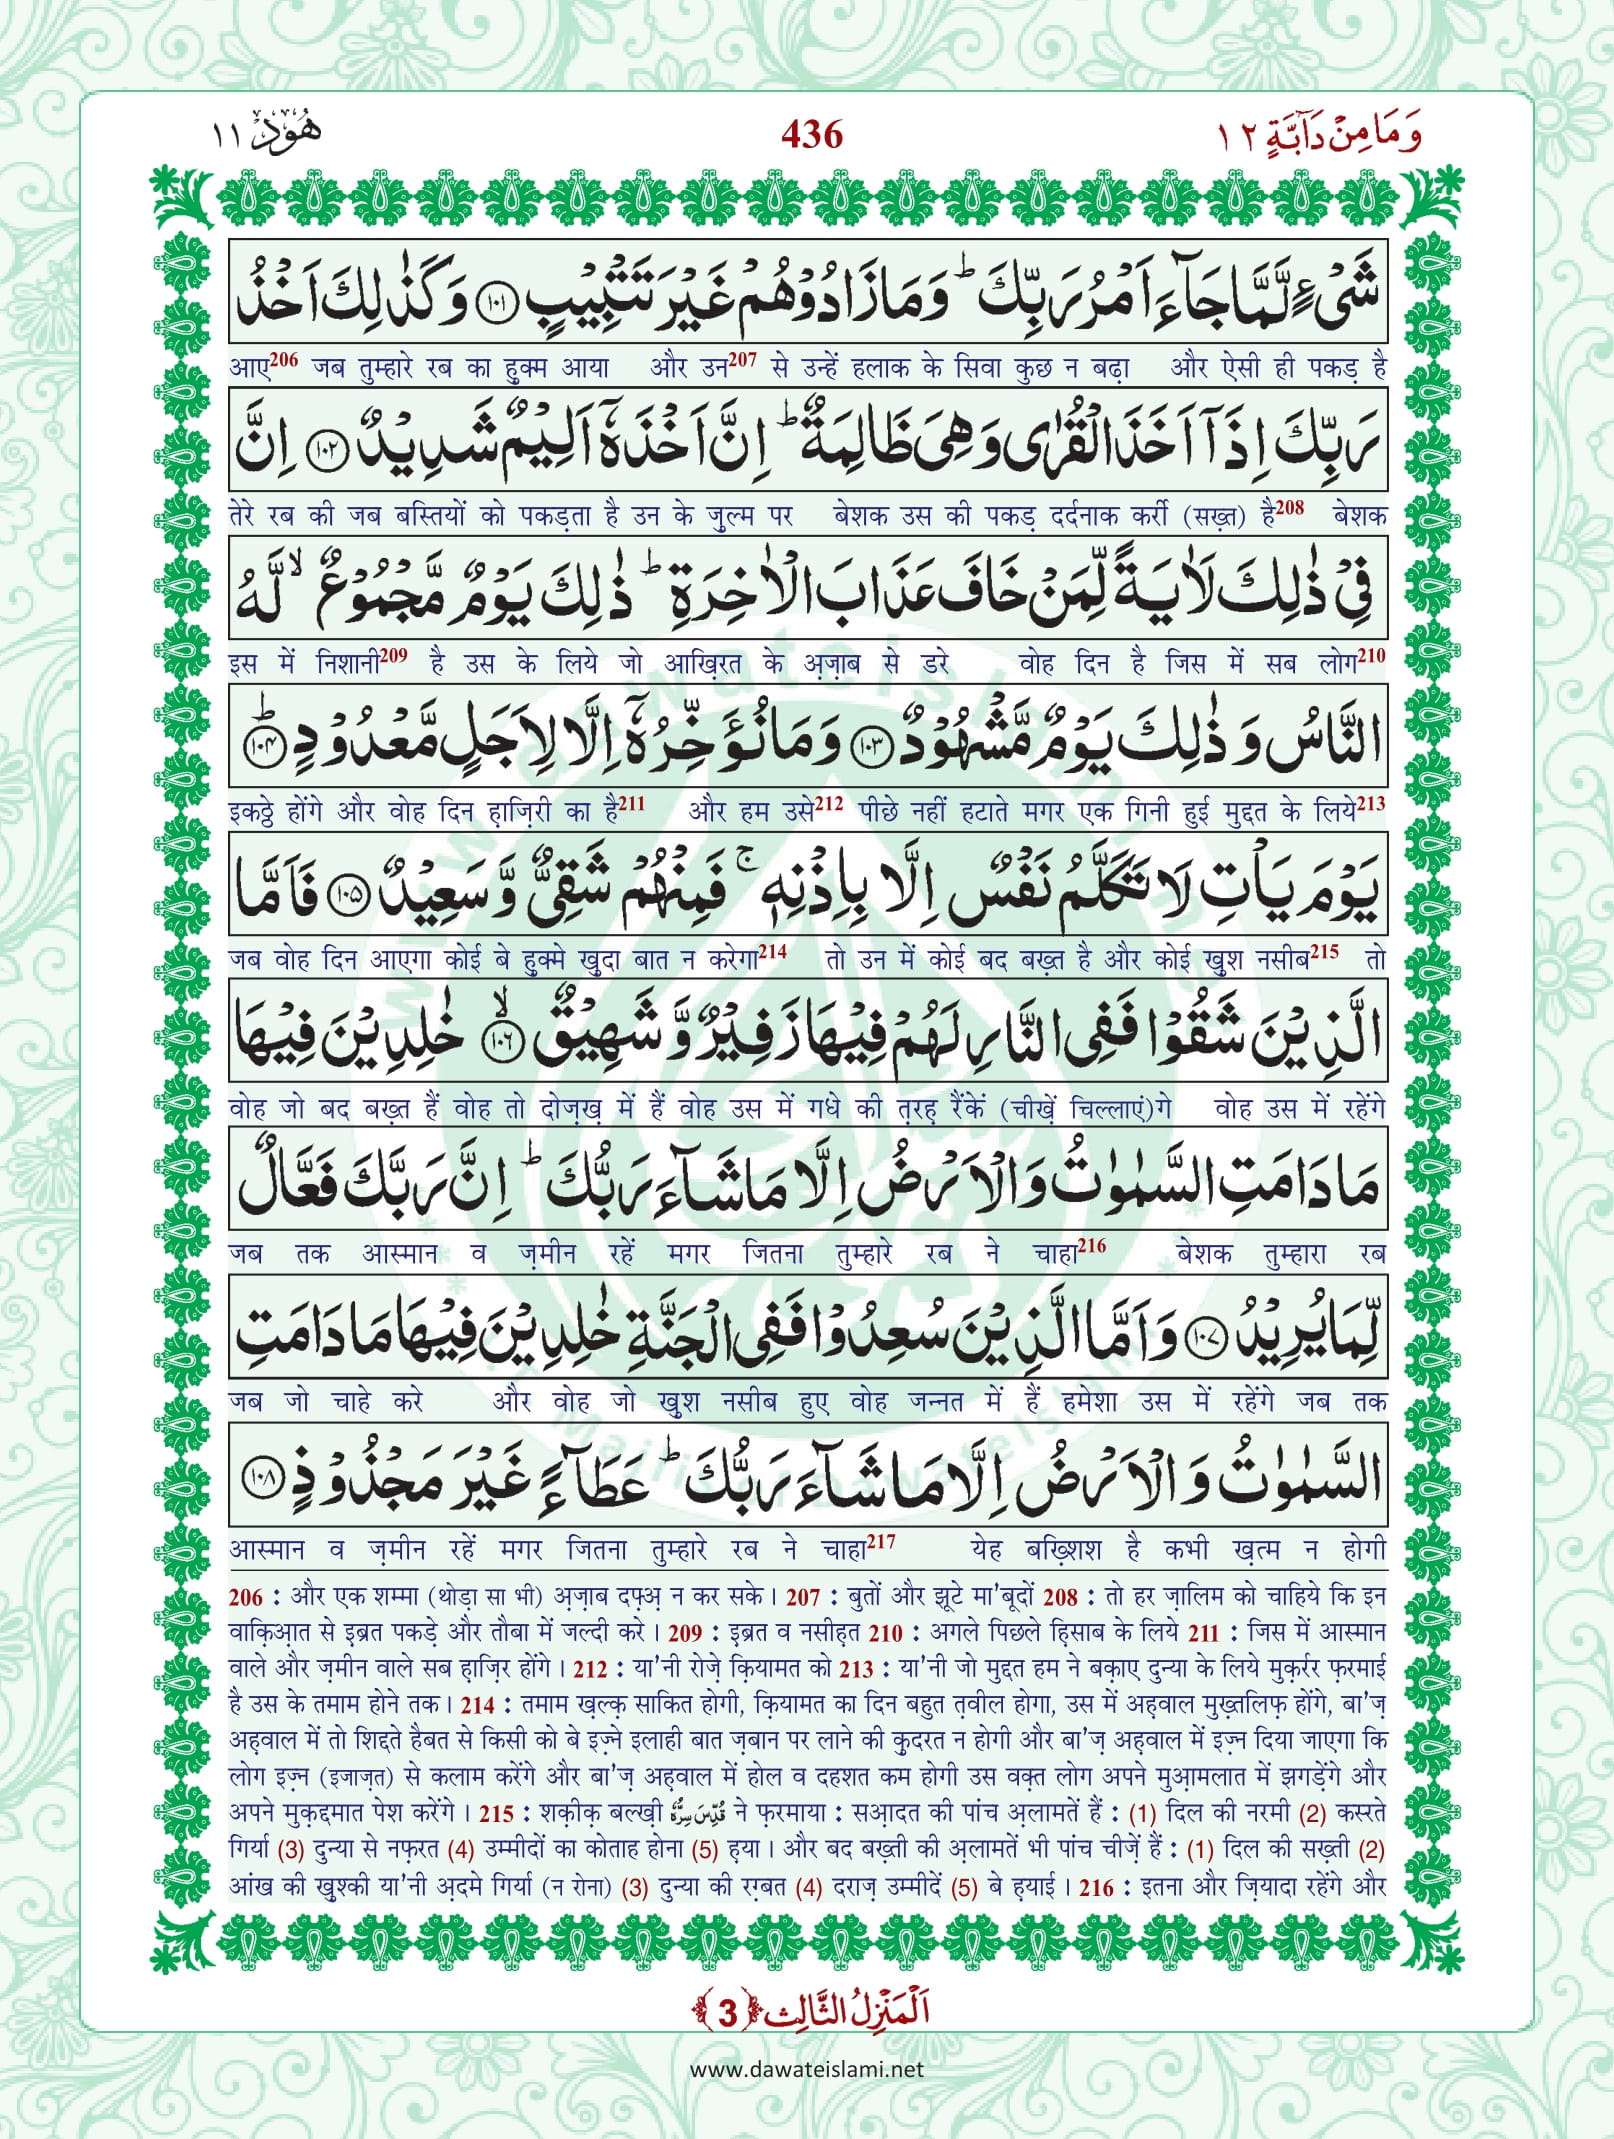 وَمَا مِنْ دَآبَّةٍ ١٢ 436 هُوْد ١١
شَیْءٍ لَّمَّا جَآءَ اَمْرُ رَبِّكَ ؕ وَ مَا زَادُوْهُمْ غَیْرَ تَتْبِیْبٍ ﴿۱۰۱﴾ وَ كَذٰلِكَ اَخْذُ
आए206 जब तुम्हारे रब का हुक्म आया और उन207 से उन्हें हलाक के सिवा कुछ न बढ़ा और ऐसी ही पकड़ है
رَبِّكَ اِذَاۤ اَخَذَ الْقُرٰی وَ هِیَ ظَالِمَةٌ ؕ اِنَّ اَخْذَهٗۤ اَلِیْمٌ شَدِیْدٌ ﴿۱۰۲﴾ اِنَّ
तेरे रब की जब बस्तियों को पकड़ता है उन के ज़ुल्म पर बेशक उस की पकड़ दर्दनाक कर्री (सख़्त) है208 बेशक
فِیْ ذٰلِكَ لَاٰیَةً لِّمَنْ خَافَ عَذَابَ الْاٰخِرَةِ ؕ ذٰلِكَ یَوْمٌ مَّجْمُوْعٌ ۙ لَّهُ
इस में निशानी209 है उस के लिये जो आख़िरत के अ़ज़ाब से डरे वोह दिन है जिस में सब लोग210
النَّاسُ وَ ذٰلِكَ یَوْمٌ مَّشْهُوْدٌ ﴿۱۰۳﴾ وَ مَا نُؤَخِّرُهٗۤ اِلَّا لِاَجَلٍ مَّعْدُوْدٍ ؕ﴿۱۰۴﴾
इकठ्ठे होंगे और वोह दिन हाज़िरी का है211 और हम उसे212 पीछे नहीं हटाते मगर एक गिनी हुई मुद्दत के लिये213
یَوْمَ یَاْتِ لَا تَكَلَّمُ نَفْسٌ اِلَّا بِاِذْنِهٖ ۚ فَمِنْهُمْ شَقِیٌّ وَّ سَعِیْدٌ ﴿۱۰۵﴾ فَاَمَّا
जब वोह दिन आएगा कोई बे हुक्मे खुदा बात न करेगा214 तो उन में कोई बद बख़्त है और कोई खुश नसीब215 तो
الَّذِیْنَ شَقُوْا فَفِی النَّارِ لَهُمْ فِیْهَا زَفِیْرٌ وَّ شَهِیْقٌ ۙ﴿۱۰۶﴾ خٰلِدِیْنَ فِیْهَا
वोह जो बद बख़्त हैं वोह तो दोज़ख़ में हैं वोह उस में गधे की त़रह़ रैंकें (चीखें़ चिल्लाएं)गे वोह उस में रहेंगे
مَا دَامَتِ السَّمٰوٰتُ وَ الْاَرْضُ اِلَّا مَا شَآءَ رَبُّكَ ؕ اِنَّ رَبَّكَ فَعَّالٌ
जब तक आस्मान व ज़मीन रहें मगर जितना तुम्हारे रब ने चाहा216 बेशक तुम्हारा रब
لِّمَا یُرِیْدُ ﴿۱۰۷﴾ وَ اَمَّا الَّذِیْنَ سُعِدُوْا فَفِی الْجَنَّةِ خٰلِدِیْنَ فِیْهَا مَا دَامَتِ
जब जो चाहे करे और वोह जो खुश नसीब हुए वोह जन्नत में हैं हमेशा उस में रहेंगे जब तक
السَّمٰوٰتُ وَ الْاَرْضُ اِلَّا مَا شَآءَ رَبُّكَ ؕ عَطَآءً غَیْرَ مَجْذُوْذٍ ﴿۱۰۸﴾
आस्मान व ज़मीन रहें मगर जितना तुम्हारे रब ने चाहा217 येह बख़्शिश है कभी ख़त्म न होगी
206 : और एक शम्मा (थोड़ा सा भी) अ़ज़ाब दफ़्अ़ न कर सके। 207 : बुतों और झूटे मा'बूदों 208 : तो हर ज़ालिम को चाहिये कि इन
वाक़िआ़त से इब्रत पकड़े और तौबा में जल्दी करे। 209 : इब्रत व नसीहत 210 : अगले पिछले हिसाब के लिये 211 : जिस में आस्मान
वाले और ज़मीन वाले सब हाज़िर होंगे। 212 : या'नी रोज़े क़ियामत को 213 : या'नी जो मुद्दत हम ने बक़ाए दुन्या के लिये मुक़र्रर फ़रमाई
है उस के तमाम होने तक। 214 : तमाम ख़ल्क़ साकित होगी, क़ियामत का दिन बहुत त़वील होगा, उस में अह़वाल मुख़्तलिफ़ होंगे, बा'ज़
अह़वाल में तो शिद्दते हैबत से किसी को बे इज़्ने इलाही बात ज़बान पर लाने की कु़दरत न होगी और बा'ज़ अह़वाल में इज़्न दिया जाएगा कि
लोग इज़्न (इजाज़त) से कलाम करेंगे और बा'ज़ अह़वाल में होल व दहशत कम होगी उस वक़्त लोग अपने मुआ़मलात में झगड़ेंगे और
अपने मुक़द्दमात पेश करेंगे। 215 : शक़ीक़ बल्ख़ी قُدِّسَ سِرُّهٗ ने फ़रमाया : सआ़दत की पांच अ़लामतें हैं : (1) दिल की नरमी (2) कस्रते
गिर्या (3) दुन्या से नफ़रत (4) उम्मीदों का कोताह होना (5) ह़या। और बद बख़्ती की अ़लामतें भी पांच चीज़ें हैं : (1) दिल की सख़्ती (2)
आंख की खु़श्की या'नी अ़दमे गिर्या (न रोना) (3) दुन्या की रग़्बत (4) दराज़ उम्मीदें (5) बे ह़याई। 216 : इतना और ज़ियादा रहेंगे और
اَلْمَنْزِلُ الثَّالِث ﴿3﴾
www.dawateislami.net